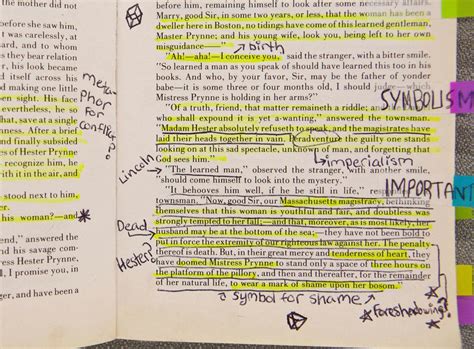 the matter did not
t was carelessly, at
ard, and to whom
s they bear relation
er his look became
ed itself across his
nd making one little
en sight. His face
evertheless, he so
that, save at a single
ness. After a brief
and finally subsided
es of Hester Prynne
recognize him, he
ith it in the air, and
stood next to him,
his woman?—and
endent," answered the
and his savage com-
ss Hester Prynne
I promise you, in
eyes, and have been a
meta
phor
for
conflict?
before him, remaining himself to look after some necessary affairs.
Marry, good Sir, in some two years, or less, that the woman has been a
dweller here in Boston, no tidings have come of this learned gentleman,
Master Prynne; and his young wife, look you, being left to her own
misguidance—"
birth
"Ah!—aha!—I conceive you," said the stranger, with a bitter smile.
"So learned a man as you speak of should have learned this too in his
books. And who, by your favor, Sir, may be the father of yonder
babe—it is some three or four months old, I should judge—which
Mistress Prynne is holding in her arms?"
"Of a truth, friend, that matter remaineth a riddle; and the Daniel
who shall expound it is yet a-wanting," answered the townsman.
"Madam Hester absolutely refuseth to speak, and the magistrates have
laid their heads together in vain. Peradventure the guilty one stands
looking on at this sad spectacle, unknown of man, and forgetting that
God sees him."
imperialism
"The learned man," observed the stranger, with another smile,
"should come himself to look into the mystery."
"It behooves him well, if he be still in life," responded the
townsman. "Now, good Sir, our Massachusetts magistracy, bethinking
themselves that this woman is youthful and fair, and doubtless was
strongly tempted to her fall,—and that, moreover, as is most likely, her
husband may be at the bottom of the sea;—they have not been bold to
put in force the extremity of our righteous law against her. The penalty
thereof is death. But, in their great mercy and tenderness of heart, they
have doomed Mistress Prynne to stand only a space of three hours on
the platform of the pillory, and then and thereafter, for the remainder
of her natural life, to wear a mark of shame upon her bosom."
symbol for shame
Dead
Hester?
*foreshadowing?
SYMBOLISM
IMPORTANT